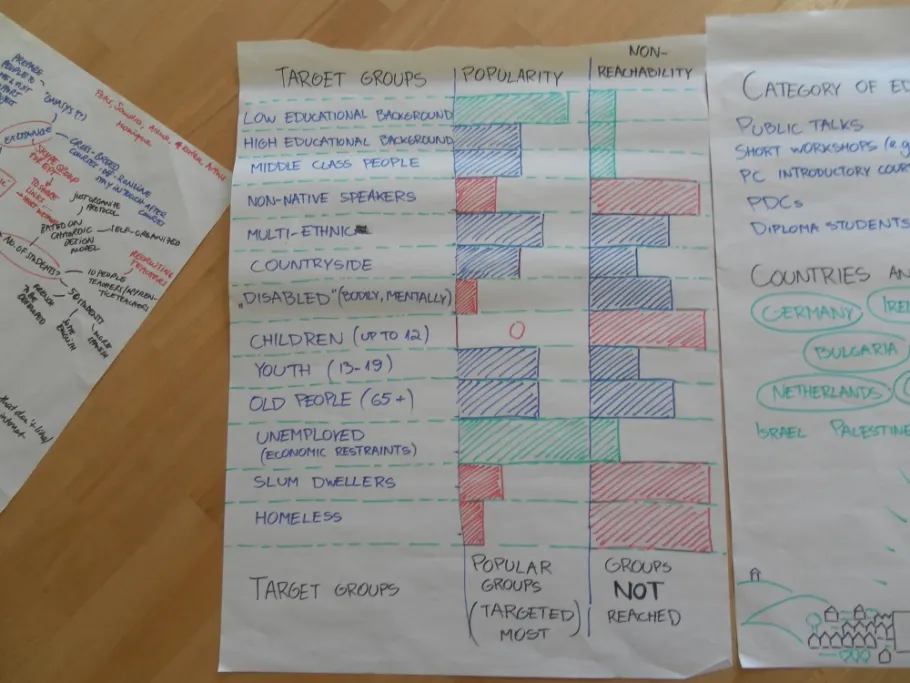 PREPARE
PEOPLE TO
"ANALYSE"(?)
EXCHANGE
TO SHARE
LINKS
JUST ORGANITE
PROTOCOL
BASED ON
CHAORDIC
DESIGN
MODEL
SELF-ORGANIZED
RECRUITING
TEACHERS
NO. OF STUDENTS?
10 PEOPLE
50 STUDENTS
TARGET GROUPS
POPULARITY
NON-
REACHABILITY
LOW EDUCATIONAL BACKGROUND
HIGH EDUCATIONAL BACKGROUND
MIDDLE CLASS PEOPLE
NON-NATIVE SPEAKERS
MULTI-ETHNIC
COUNTRYSIDE
„DISABLED" (BODILY, MENTALLY)
CHILDREN (UP TO 12)
0
YOUTH (13-19)
OLD PEOPLE (65+)
UNEMPLOYED
(ECONOMIC RESTRAINTS)
SLUM DWELLERS
HOMELESS
TARGET GROUPS
POPULAR
GROUPS
(TARGETED
MOST)
GROUPS
NOT
REACHED
CATEGORY OF ED
PUBLIC TALKS
SHORT WORKSHOPS (e.g
PC INTRODUCTORY COUR
PDCs
DIPLOMA STUDENTS
COUNTRIES AN
GERMANY
IREL
BULGARIA
NETHERLANDS
ISRAEL PALESTINE